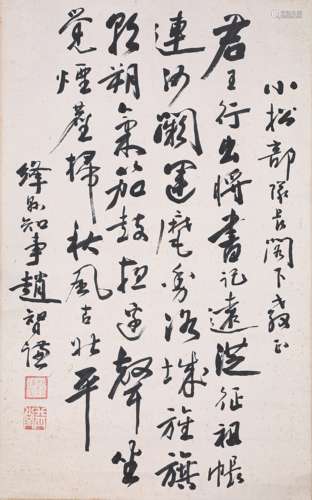 小松部隊長閣下教正
君王行出將書記遠從征祖帳
連河闕軍麾動洛城旌旗
朝朔氣笳鼓夜邊聲坐
覺煙塵掃秋風古北平
絳縣知事趙智謙